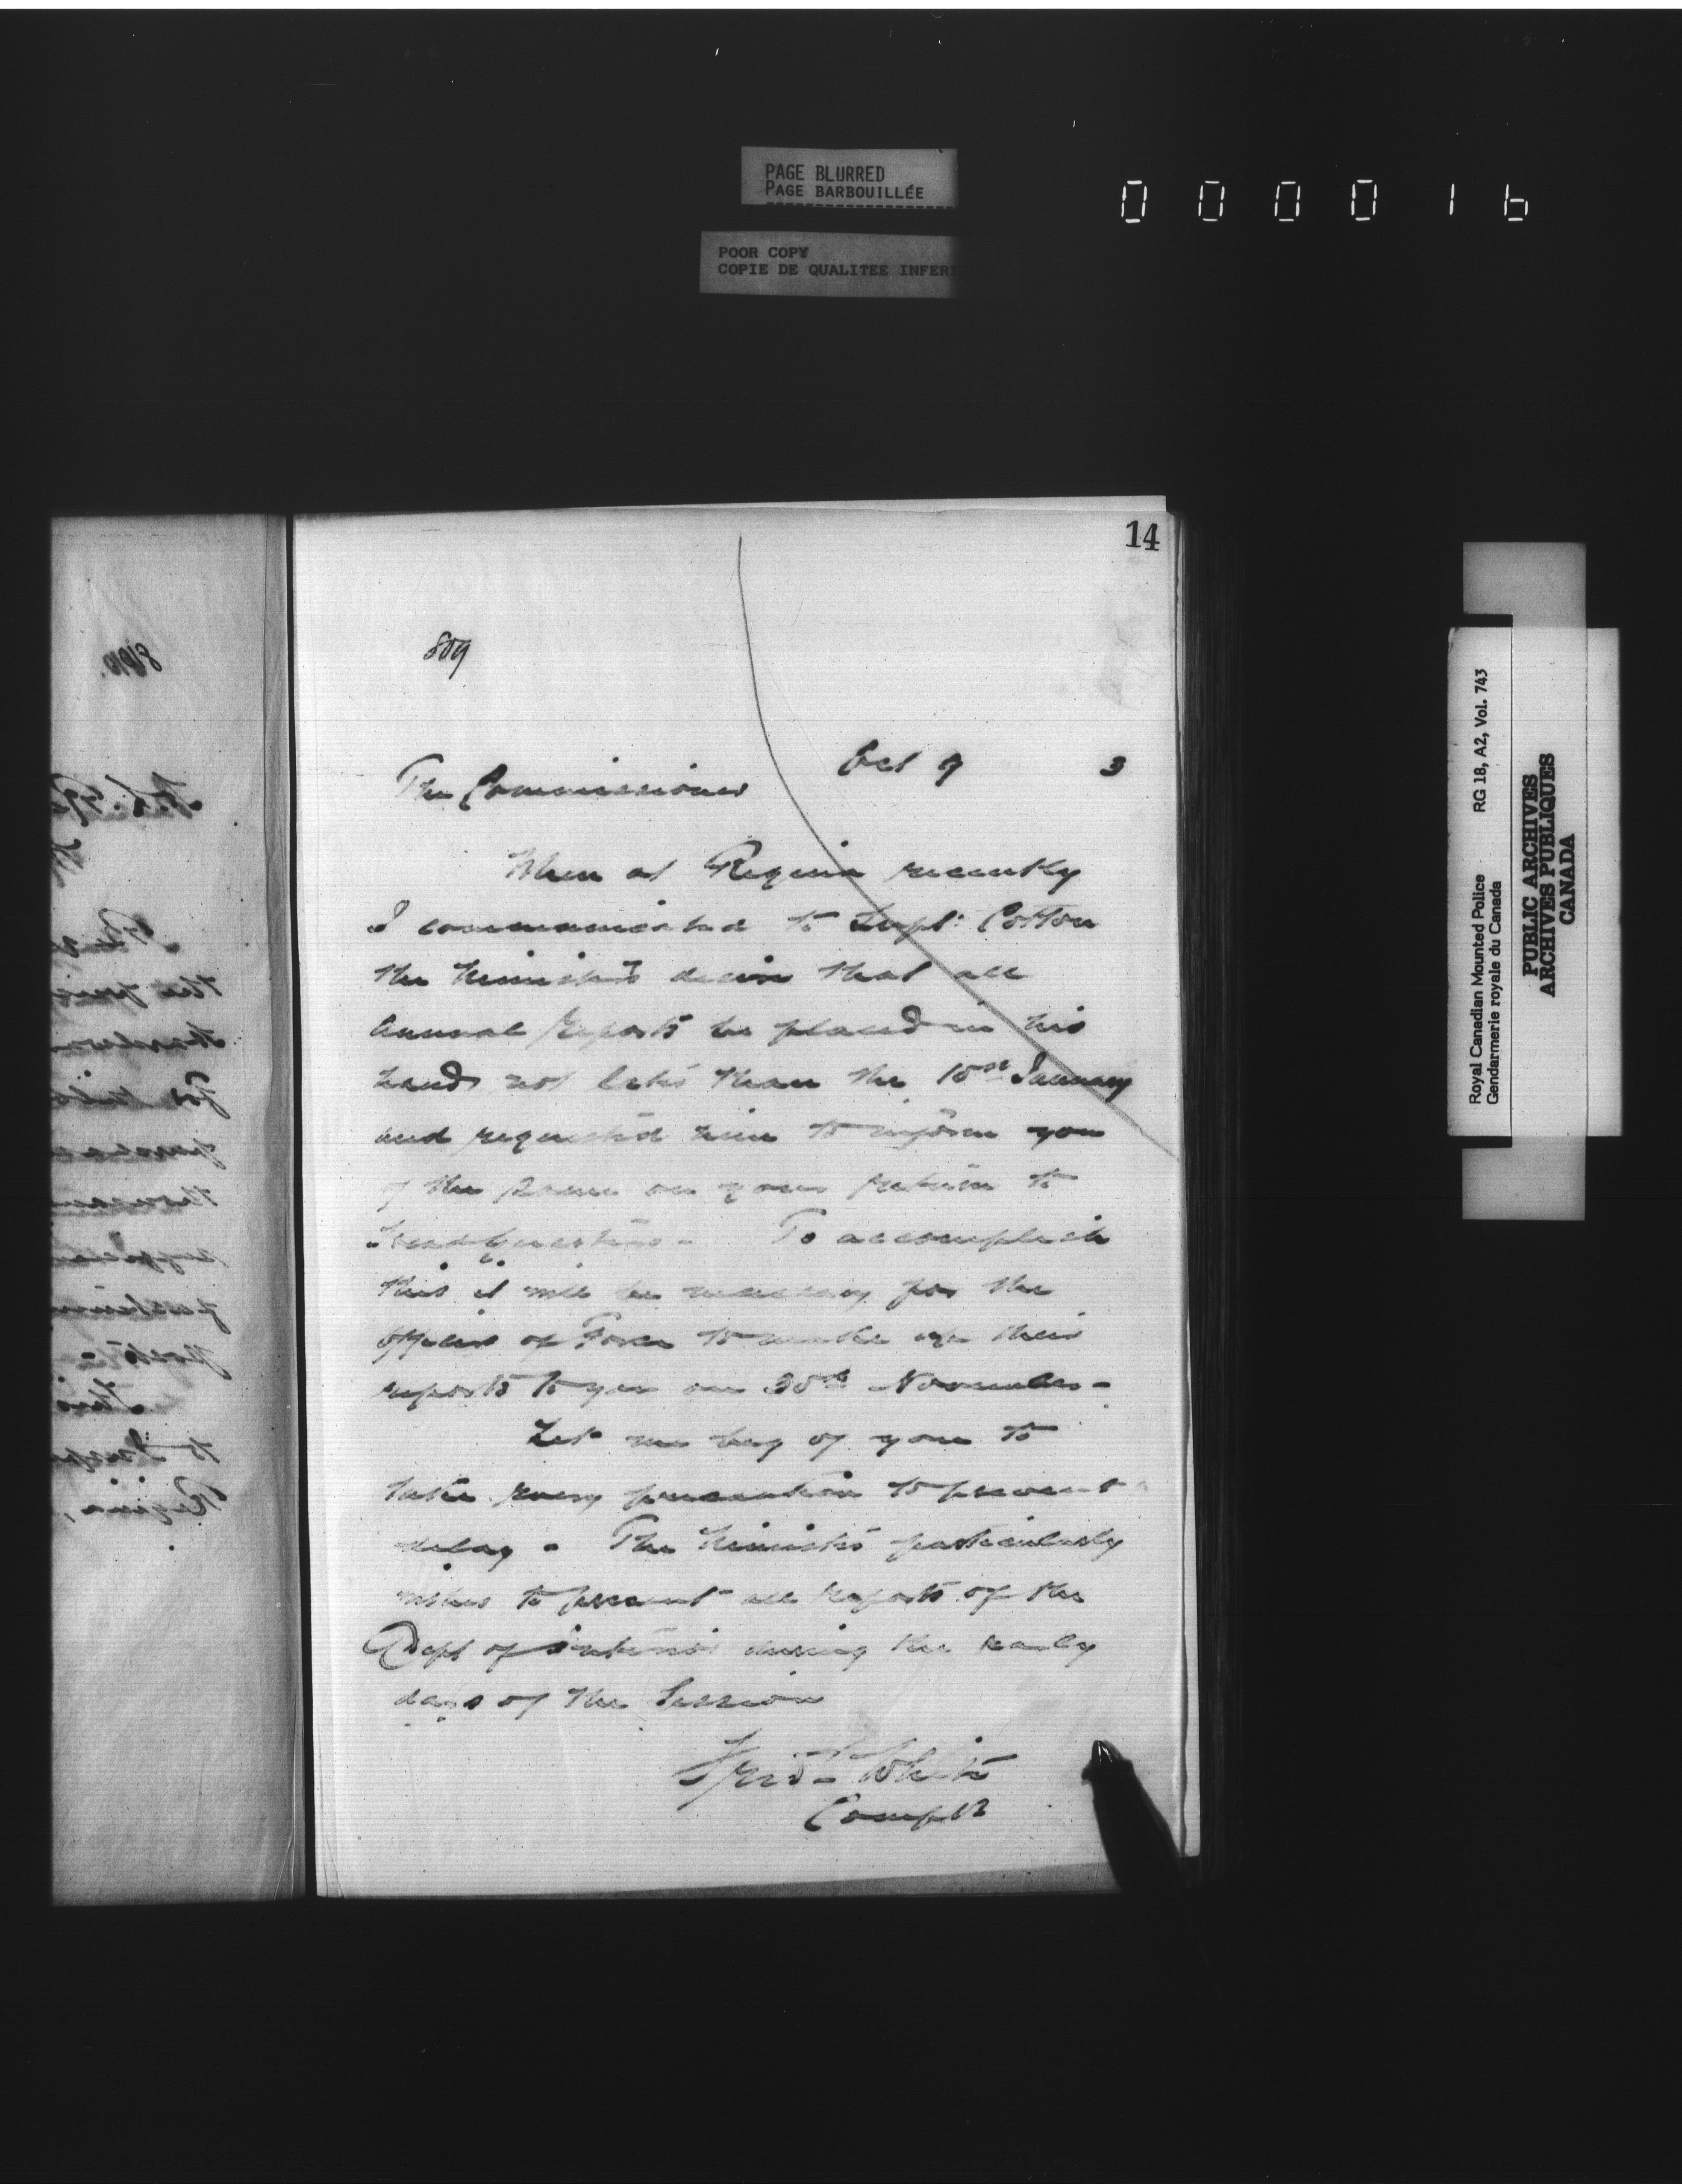 PAGE BLURRED
PAGE BARBOUILLÉE
POOR COPY
COPIE DE QUALITEE INFERI
000016
14
809
Oct 9 3
The Commissioner
When at Regina recently
I communicated to Supt. Cotton
the Minister's desire that all
Annual Reports be placed in his
hands not later than the 10th January
and requested him to inform you
of the same on your return to
Headquarters - To accomplish
this it will be necessary for the
Officers of Force to make up their
reports to you on 30th November -
Let me beg of you to
take every precaution to prevent
delay - The Minister particularly
wishes to present all reports of the
Dept of Interior during the early
days of the Session
Fred White
Comptr
Royal Canadian Mounted Police RG 18, A2, Vol. 743
Gendarmerie royale du Canada
PUBLIC ARCHIVES
ARCHIVES PUBLIQUES
CANADA